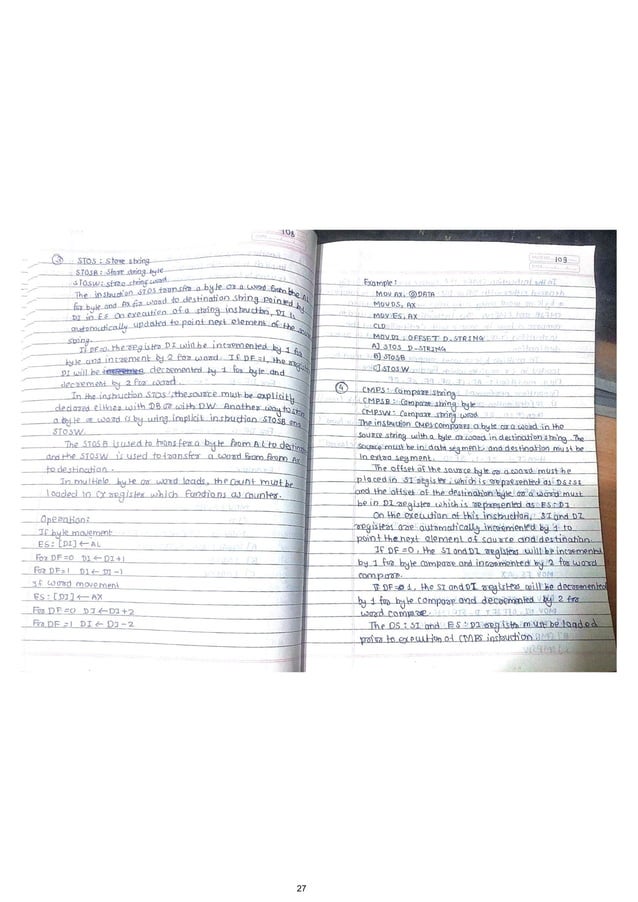 108
③ STOS : Store string
STOSB : Store string byte
STOSW : store string word
The instruction STOS transfer a byte or a word from the AL
for byte and AX for word to destination string pointed by
DI in ES. On execution of a string instruction, DI is
automatically updated to point next element of the
string.
If DF=0, the register DI will be incremented by 1 for
byte and increment by 2 for word. If DF=1, the register
DI will be decremented by 1 for byte and
decrement by 2 for word.
In the instruction STOS, the source must be explicitly
declared either with DB or with DW. Another way to store
a byte or word is by using implicit instruction STOSB and
STOSW.
The STOSB is used to transfer a byte from AL to destination
and the STOSW is used to transfer a word from from AX
to destination.
In multiple byte or word loads, the count must be
loaded in CX register which functions as counter.
Operation:
If byte movement
ES:[DI] ← AL
For DF=0 DI ← DI+1
For DF=1 DI ← DI-1
If word movement
ES:[DI] ← AX
For DF=0 DI ← DI+2
For DF=1 DI ← DI-2
109
Example:
MOV AX, @DATA
MOV DS, AX
MOV ES, AX
CLD
MOV DI, OFFSET D_STRING
A) STOS D-STRING
B) STOSB
C) STOSW
④ CMPS : Compare string
CMPSB : Compare string byte
CMPSW : Compare string word
The instruction CMPS compares a byte or a word in the
source string with a byte or word in destination string. The
source must be in data segment and destination must be
In extra segment.
The offset of the source byte or a word must be
placed in SI register, which is represented as DS:SI
and the offset of the destination byte or a word must
be in DI register which is represented as ES:DI
On the execution of this instruction, SI and DI
registers are automatically incremented by 1 to
point the next element of source and destination.
If DF=0, the SI and DI registers will be incremented
by 1 for byte compare and incremented by 2 for word
compare.
If DF=1, the SI and DI registers will be decremented
by 1 for byte compare and decremented by 2 for
word compare.
The DS:SI and ES:DI register must be loaded
prior to execution of CMPS instruction
27